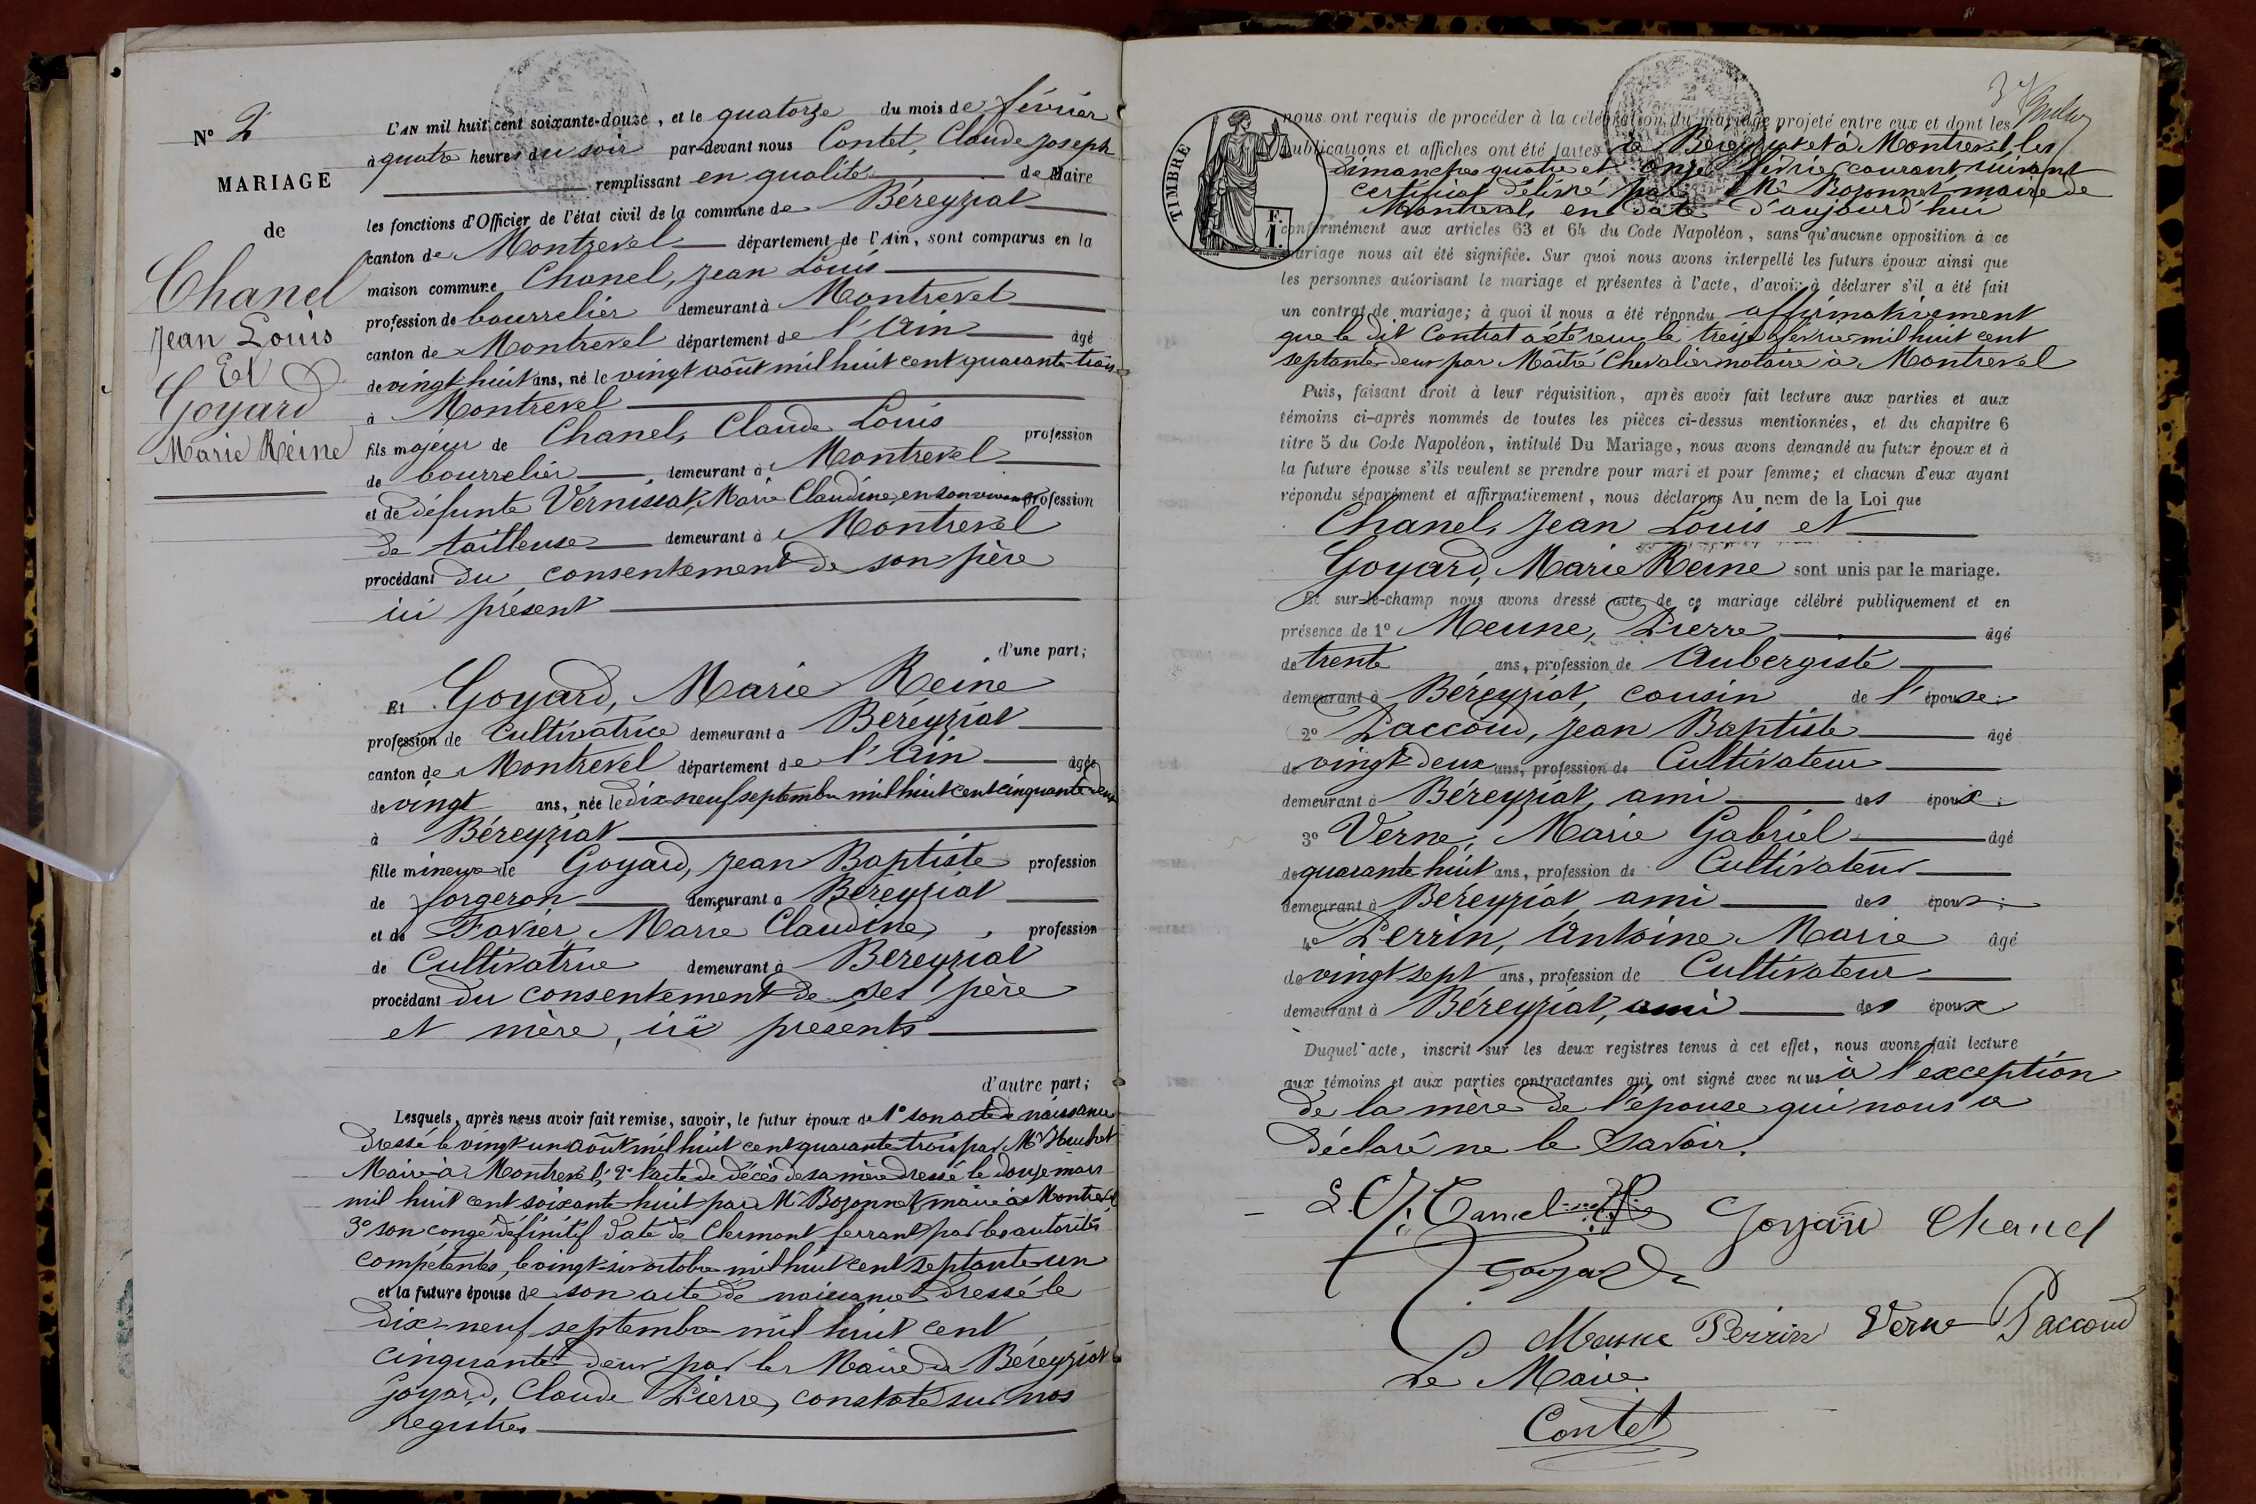 N° 2
MARIAGE
de
Chanel
Jean Louis
Et
Goyard
Marie Reine
L'AN mil huit cent soixante-douze, et le quatorze du mois de février
à quatre heures du soir par-devant nous Contet, Claude Joseph
remplissant en qualité de Maire
les fonctions d'Officier de l'état civil de la commune de Béreyziat
canton de Montrevel département de l'Ain, sont comparus en la
maison commune Chanel, Jean Louis
profession de bourrelier demeurant à Montrevel
canton de Montrevel département de l'Ain âgé
de vingt huit ans, né le vingt août mil huit cent quarante-trois
à Montrevel
fils majeur de Chanel, Claude Louis profession
de bourrelier demeurant à Montrevel
et de défunte Vernissat, Marie Claudine, en son vivant profession
de tailleuse demeurant à Montrevel
procédant du consentement de son père
ici présent
d'une part;
Et Goyard, Marie Reine
profession de Cultivatrice demeurant à Béreyziat
canton de Montrevel département de l'Ain âgée
de vingt ans, née le dix-neuf septembre mil huit cent cinquante deux
à Béreyziat
fille mineure de Goyard, Jean Baptiste profession
de forgeron demeurant à Béreyziat
et de Favier, Marie Claudine, profession
de Cultivatrice demeurant à Béreyziat
procédant du consentement de ses père
et mère, ici présents
d'autre part;
Lesquels, après nous avoir fait remise, savoir, le futur époux de 1° son acte de naissance
dressé le vingt-un août mil huit cent quarante trois par Mr Huchet
Maire à Montrevel; 2° l'acte de décès de sa mère dressé le douze mars
mil huit cent soixante huit par Mr Bozonnet, maire à Montrevel
3° son congé définitif daté de Clermont ferrant par les autorités
compétentes, le vingt-six octobre mil huit cent septante-un
et la future épouse de son acte de naissance dressé le
dix-neuf septembre mil huit cent
cinquante deux par le Maire de Béreyziat
Goyard, Claude Pierre, constaté sur nos
registres
3
TIMBRE
F.
I.
nous ont requis de procéder à la célébration du mariage projeté entre eux et dont les
publications et affiches ont été faites à Béreyziat et à Montrevel les
dimanches quatre et onze février courant suivant
certificat délivré par Mr Bozonnet maire de
Montrevel, en date d'aujourd'hui
conformément aux articles 63 et 64 du Code Napoléon, sans qu'aucune opposition à ce
mariage nous ait été signifiée. Sur quoi nous avons interpellé les futurs époux ainsi que
les personnes autorisant le mariage et présentes à l'acte, d'avoir à déclarer s'il a été fait
un contrat de mariage; à quoi il nous a été répondu affirmativement
que le dit Contrat a été reçu le treize février mil huit cent
septante-deux par Maître Chevalier notaire à Montrevel
Puis, faisant droit à leur réquisition, après avoir fait lecture aux parties et aux
témoins ci-après nommés de toutes les pièces ci-dessus mentionnées, et du chapitre 6
titre 5 du Code Napoléon, intitulé Du Mariage, nous avons demandé au futur époux et à
la future épouse s'ils veulent se prendre pour mari et pour femme; et chacun d'eux ayant
répondu séparément et affirmativement, nous déclarons Au nom de la Loi que
Chanel, Jean Louis et
Goyard, Marie Reine sont unis par le mariage.
Et sur-le-champ nous avons dressé acte de ce mariage célébré publiquement et en
présence de 1° Meune, Pierre âgé
de trente ans, profession de Aubergiste
demeurant à Béreyziat, cousin de l'épouse;
2° Paccoud, Jean Baptiste âgé
de vingt deux ans, profession de Cultivateur
demeurant à Béreyziat, ami des époux;
3° Verne, Marie Gabriel âgé
de quarante huit ans, profession de Cultivateur
demeurant à Béreyziat, ami des époux;
4° Perrin, Antoine Marie âgé
de vingt sept ans, profession de Cultivateur
demeurant à Béreyziat, ami des époux
Duquel acte, inscrit sur les deux registres tenus à cet effet, nous avons fait lecture
aux témoins et aux parties contractantes qui ont signé avec nous à l'exception
de la mère de l'épouse qui nous a
déclaré ne le savoir.
Goyard Chanel
Goyard
Meune Perrin Verne Paccoud
Le Maire
Contet